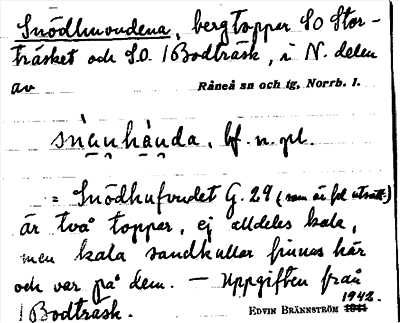 Snödhuvudena, bergtoppar SO Stor-
träsket och S.O. /Bodträsk, i N. delen
av Råneå sn och tg, Norrb. l.
snạ̀ụnhạ̀ṇda, bf. n. pl.
= Snödhufvudet G. 29 (som är fel utsatt.)
är två toppar, ej alldeles kala,
men kala sandkullar finnas här
och var på dem. — Uppgiften från
/Bodträsk. EDVIN BRÄNNSTRÖM 1942.